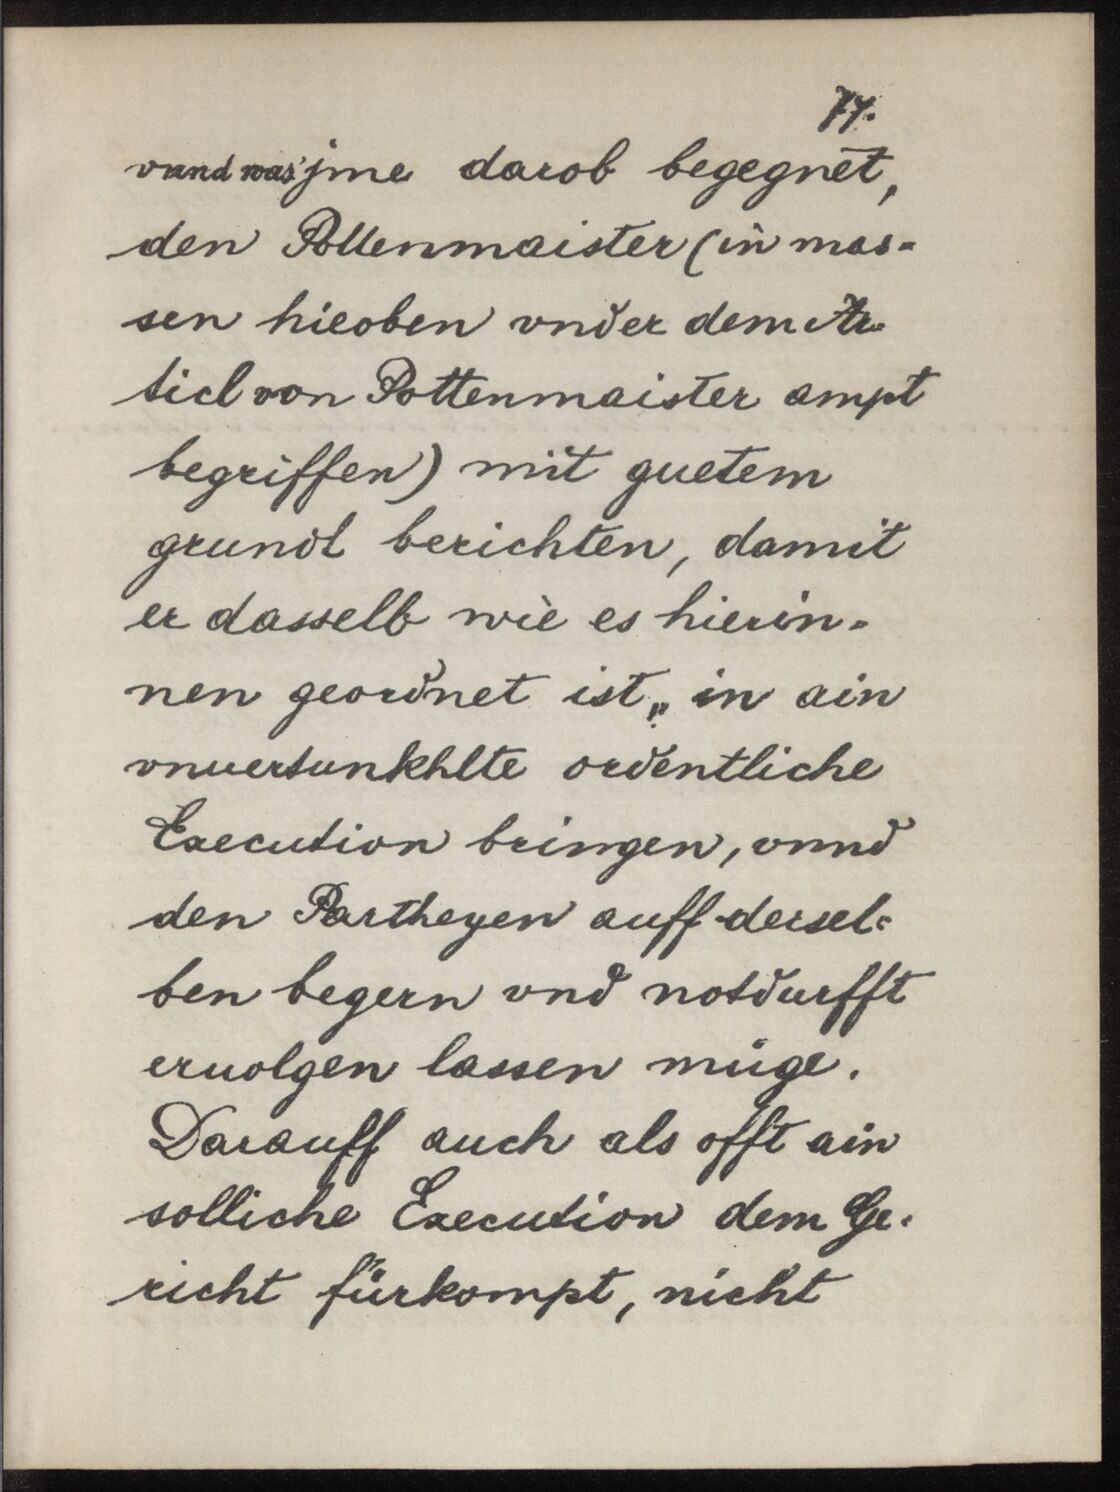 77.
vnnd was jme darob begegnet,
den Pottenmaister (in mas=
sen hieoben vnder dem Ar=
ticl von Pottenmaister ampt
begriffen) mit guetem
grundt berichten, damit
er dasselb wie es hierin=
nen geordnet ist„ in ain
vnuertunkhlte ordentliche
Execution bringen, vnnd
den Partheyen auff dersel=
ben begern vnd notdurfft
eruolgen lassen müge.
Darauff auch als offt ain
solliche Execution dem Ge=
richt fürkompt, nicht